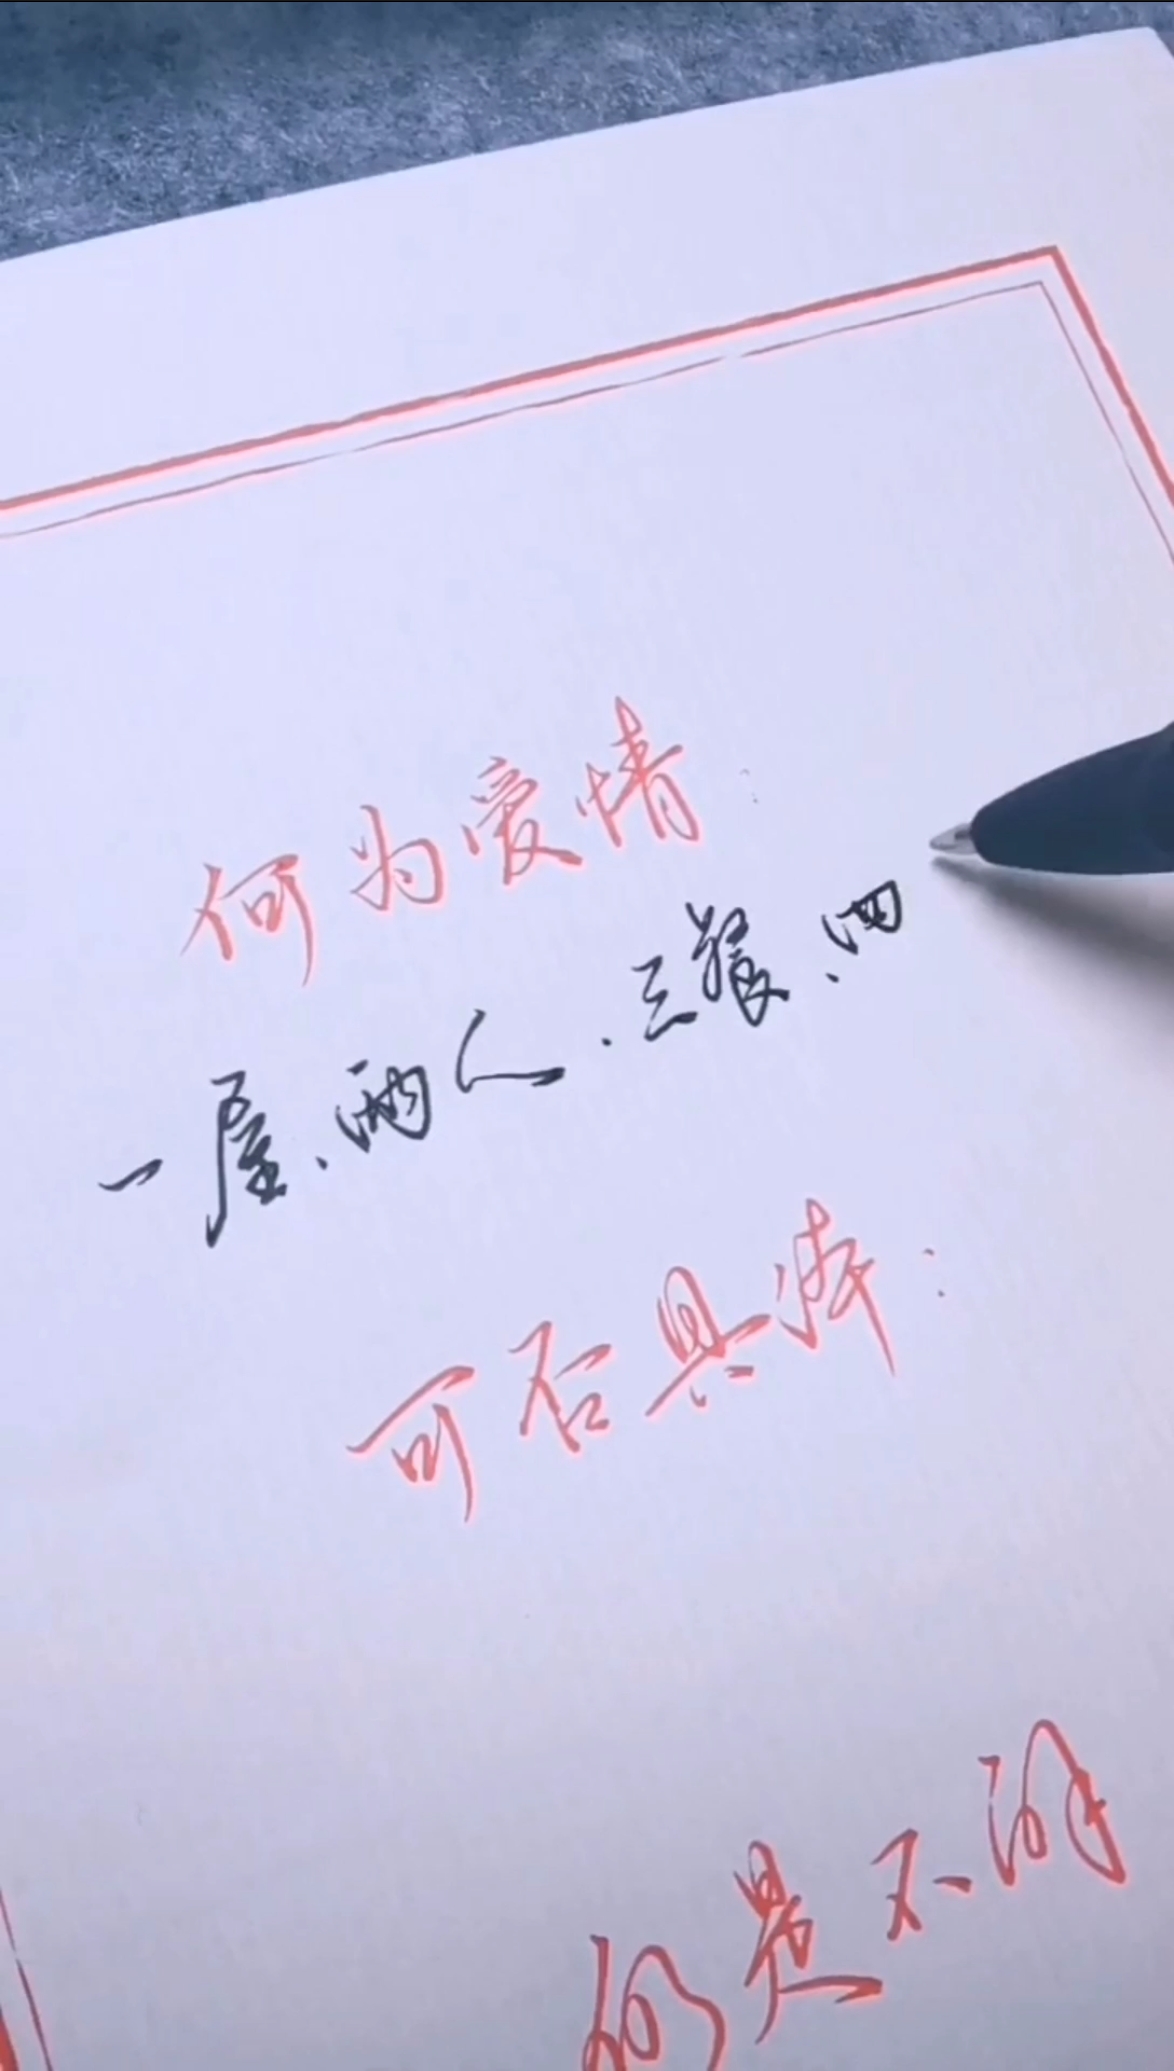 何为爱情：
一屋、两人、三餐、四
可否具体：
仍是不明